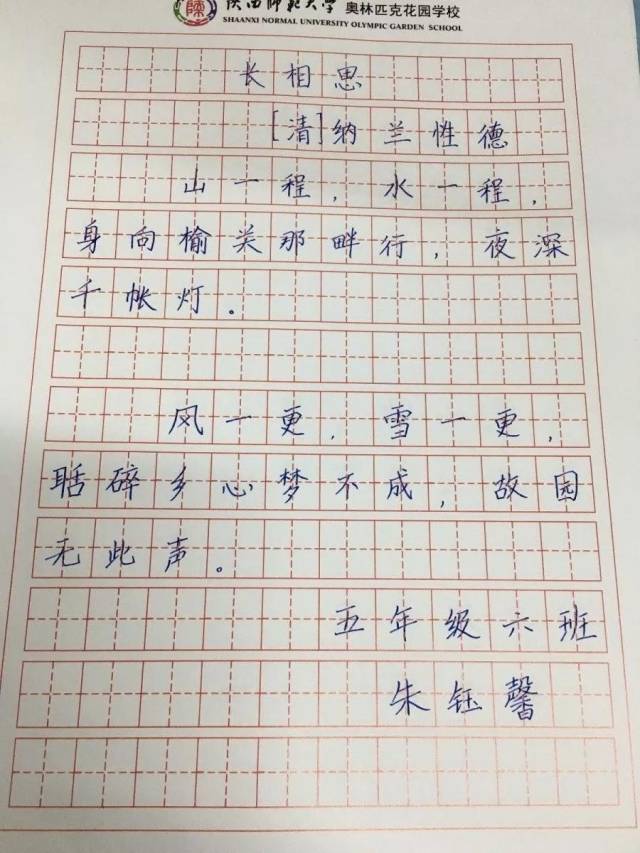 陕西师范大学 奥林匹克花园学校
SHAANXI NORMAL UNIVERSITY OLYMPIC GARDEN SCHOOL
长相思
[清]纳兰性德
山一程，水一程，
身向榆关那畔行，夜深
千帐灯。
风一更，雪一更，
聒碎乡心梦不成，故园
无此声。
五年级六班
朱钰馨